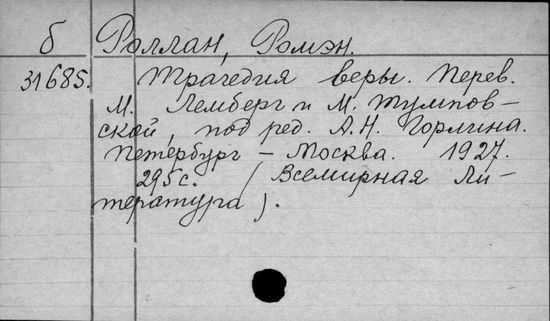 б Роллан, Ромэн.
31685. Трагедия веры. Перев.
М. Лемберг и М. Тумпов-
ской, под ред. А.Н. Горлина.
Петербург – Москва. 1927.
295с. (Всемирная Ли-
тература).